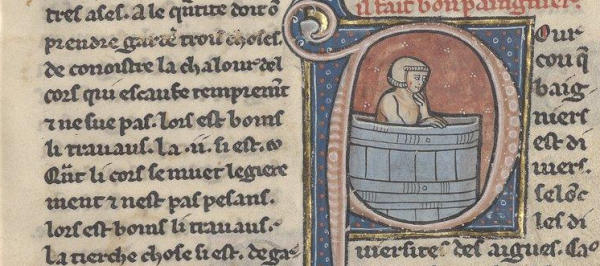 tres ases. A le q̄ntite doit ō
prendre garde trois choses.
de conoistre la chalour del
cors qui escaufe tempreemt̄
⁊ ne sue pas. lors est boins
li travaus. la .ii. si est. co
Qn̄t li cors se muet legiere
ment ⁊ nest pas pesans.
lors est boins li travaus.
la tierche chose si est. de ga
il fait bon baingnier.
Pour
cou q̄
baig
niers
est di
vers.
selōc
les di
versites des aigues. Ca